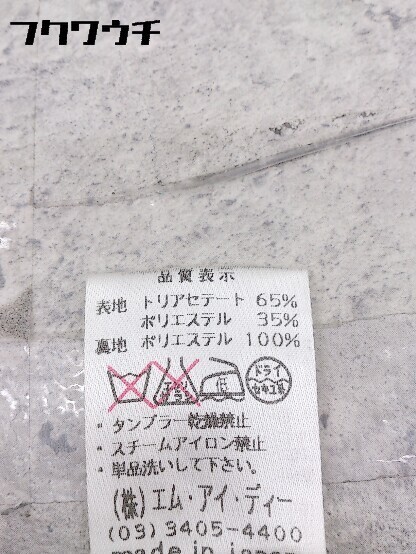 フクワウチ
品質表示
表地 トリアセテート 65%
ポリエステル 35%
裏地 ポリエステル 100%
エンソ
サラシ
低
ドライ
セキユ系
・タンブラー乾燥禁止
・スチームアイロン禁止
・単品洗いして下さい。
(株)エム・アイ・ディー
(03)3405-4400
made in japan